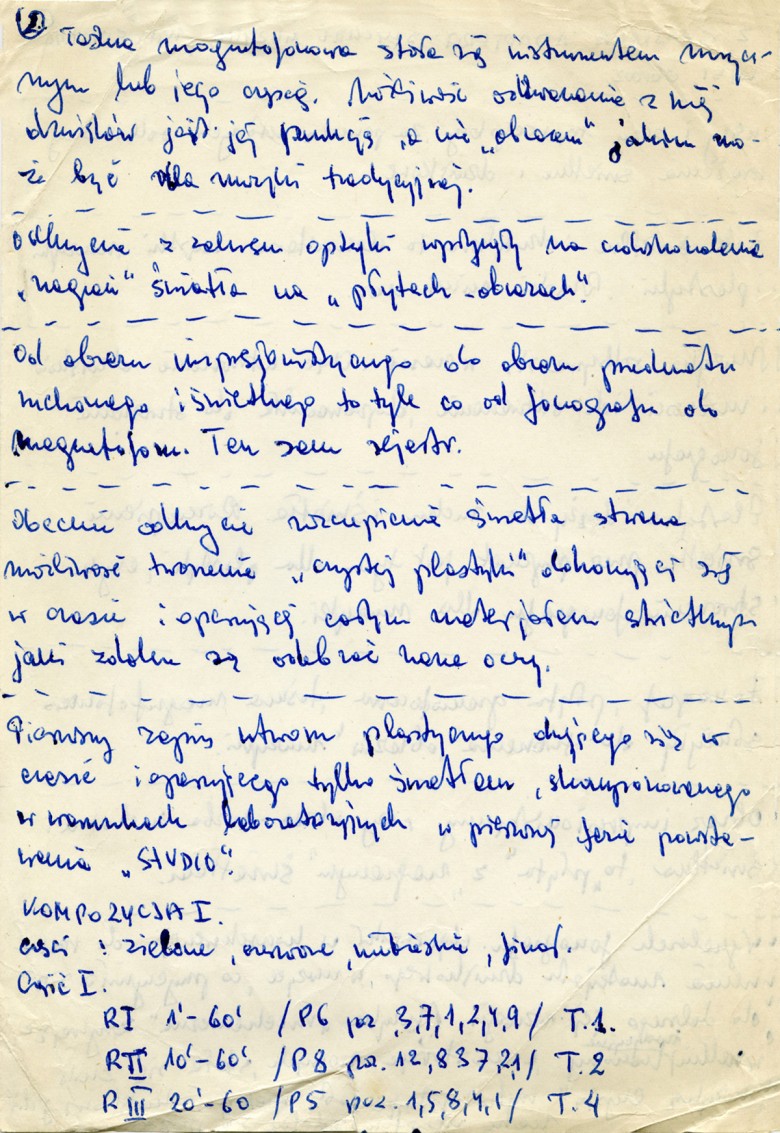 2.
Taśma magnetofonowa stała się instrumentem muzycz-
nym lub jego częścią. Możliwość odtwarzania z niej
dźwięków jest jej funkcją, a nie „obrazem" jakim mo-
że być dla muzyki tradycyjnej.
Odkrycia z zakresu optyki wpłynęły na udoskonalenie
„nagrań" światła na „płytach-obrazach".
Od obrazu impresjonistycznego do obrazu przedmiotu
ruchomego i świetlnego to tyle co od fonografu do
magnetofonu. Ten sam rejestr.
Obecnie odkrycie rozczepienia światła stwarza
możliwość tworzenia „czystej plastyki" dokonującej się
w czasie i operującej całym materjałem świetlnym
jaki zdolne są odebrać nasze oczy.
Pierwszy zapis utworu plastycznego dziejącego się w
czasie i operującego tylko światłem, skomponowanego
w warunkach laboratoryjnych w pierwszej fazie powsta-
wania „STUDIO".
KOMPOZYCJA I.
części: zielone, czerwone, niebieskie, finał.
Część I.
RI 1'-60' /P6 poz. 3,7,1,2,4,9/ T.1.
RII 10'-60' /P8 poz. 12,8 3 7 2,1/ T.2
RIII 20'-60 /P5 poz. 1,5,8,4,1/ T.4